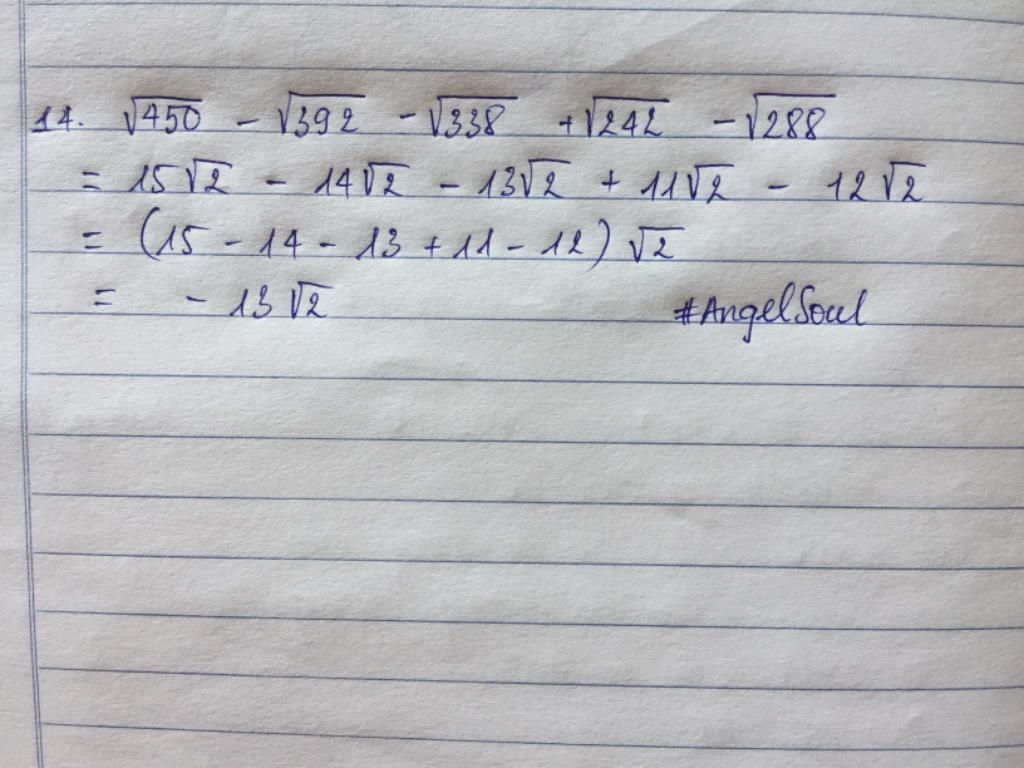 14. √450 - √392 - √338 + √242 - √288
= 15√2 - 14√2 - 13√2 + 11√2 - 12√2
= (15 - 14 - 13 + 11 - 12) √2
= - 13√2
#AngelSoul